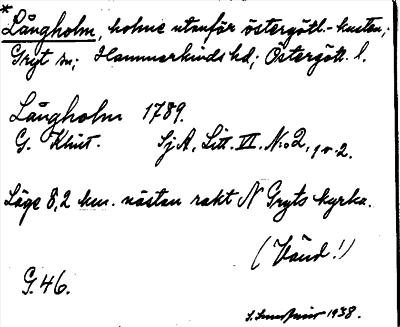 * Långholm, holme utanför östergötl.-kusten;
Gryt sn; Hammarkinds hd; Östergötl. l.
Långholm 1789.
G. Klint. SjA, Litt. VI. N:o 2, 1 o. 2.
Läge 8,2 km. nästan rakt N Gryts kyrka.
(Vänd!)
G. 46.
1938.